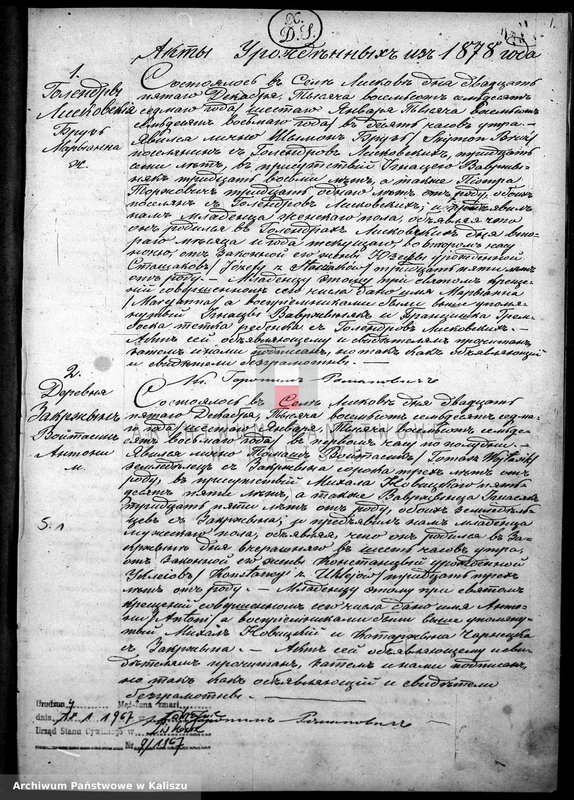 X.
D.S.
1.
Акты Урожденныхъ изъ 1878 года
1.
Голендры
Лисковскія
Брузь
Маріанна
ж.
Состоялось въ Селѣ Лисковѣ дня двадцать
пятаго Декабря, тысяча восемьсотъ семьдесятъ
седьмаго года /шестаго Января тысяча восемьсотъ
семьдесятъ восьмаго года/ въ десять часовъ утра.
Явился лично Шимонъ Брузь /Szymon Bruź/
поселянинъ съ Голендровъ Лисковскихъ, тридцать
семи лѣтъ, въ присутствіи Игнацего
тридцать восьми лѣтъ, а также
тридцать одного лѣтъ отъ роду, обоихъ
поселянъ съ Голендровъ Лисковскихъ, и предъявилъ
намъ младенца женскаго пола, объявляя что
онъ родился въ Голендрахъ Лисковскихъ дня вто-
раго мѣсяца и года текущаго во второмъ часу
ночью, отъ законной его жены Юзефы урожденной
Сташакъ /Józefy z Stasiaków/ тридцать пяти лѣтъ
отъ роду. — Младенцу этому при святомъ креще-
ніи совершенномъ сего числа дано имя Маріанна
/Maryanna/ а воспріемниками были выше упомя-
нутый Игнацы и Францишка
тетка ребенка съ Голендровъ Лисковскихъ. —
Актъ сей объявляющему и свидѣтелямъ прочитанъ,
нами подписанъ, но такъ какъ объявляющій
и свидѣтели безграмотны. —
Кс.
2.
Деревня
Закржынъ
Войтасикъ
Антони
м.
Состоялось въ Селѣ Лисковѣ дня двадцать
пятаго Декабря, тысяча восемьсотъ семьдесятъ седь-
маго года /шестаго Января тысяча восемьсотъ семьде-
сятъ восьмаго года/ въ первомъ часу по полудни. —
Явился лично Томашъ Войтасикъ, /Tomasz Wojtasik/
земледѣлецъ съ Закржына сорока трехъ лѣтъ отъ
роду, въ присутствіи Михала Новицкаго пять-
десятъ пяти лѣтъ, а также Вавржынца
тридцать пяти лѣтъ отъ роду, обоихъ земледѣль-
цевъ съ Закржына; и предъявилъ намъ младенца
мужескаго пола, объявляя, что онъ родился въ За-
кржынѣ дня вчерашняго въ шесть часовъ утра,
отъ законной его жены Констанціи урожденной
/Konstancyi z / тридцать трехъ
лѣтъ отъ роду. — Младенцу этому при святомъ
крещеніи совершенномъ сего числа дано имя Анто-
ни /Antoni/ а воспріемниками были выше упомяну-
тый Михалъ Новицкій и Катаржына
съ Закржына. — Актъ сей объявляющему и сви-
дѣтелямъ прочитанъ, нами подписанъ,
но такъ какъ объявляющій и свидѣтели
безграмотны. —
S. 1
Urodzony Mał-żona zmarł
dnia 12. 1 1967
Urząd Stanu Cywilnego w
Nr 9/1967
ARCHIWUM PAŃSTWOWE
W KALISZU
Archiwum Państwowe w Kaliszu